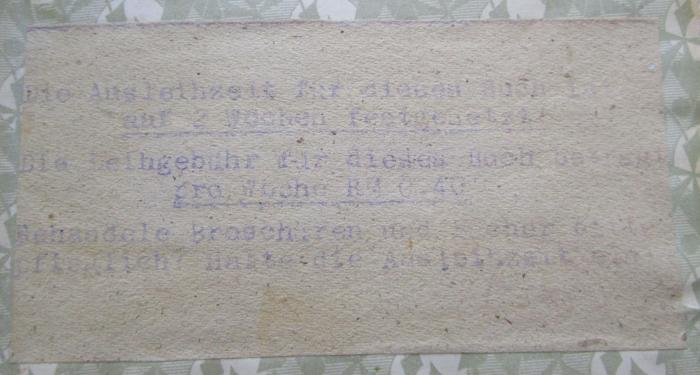 Die Ausleihzeit für dieses Buch ist
auf 2 Wochen festgesetzt.
Die Leihgebühr für dieses Buch beträgt
pro Woche RM 0.40
Behandele Broschüren und Bücher
pfleglich! Halte die Ausleihzeit ein